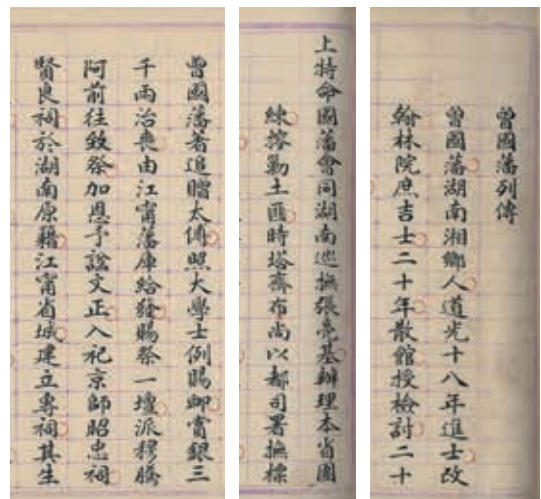 曾國藩列傳
曾國藩湖南湘鄉人道光十八年進士改
翰林院庶吉士二十年散館授檢討二十
上特命國藩會同湖南巡撫張亮基辦理本省團
練搒勦土匪時塔齊布尚以都司署撫標
曾國藩著追贈太傅照大學士例賜卹賞銀三
千兩治喪由江甯藩庫給發賜祭一壇派穆騰
阿前往致祭加恩予諡文正入祀京師昭忠祠
賢良祠於湖南原籍江甯省城建立專祠其生